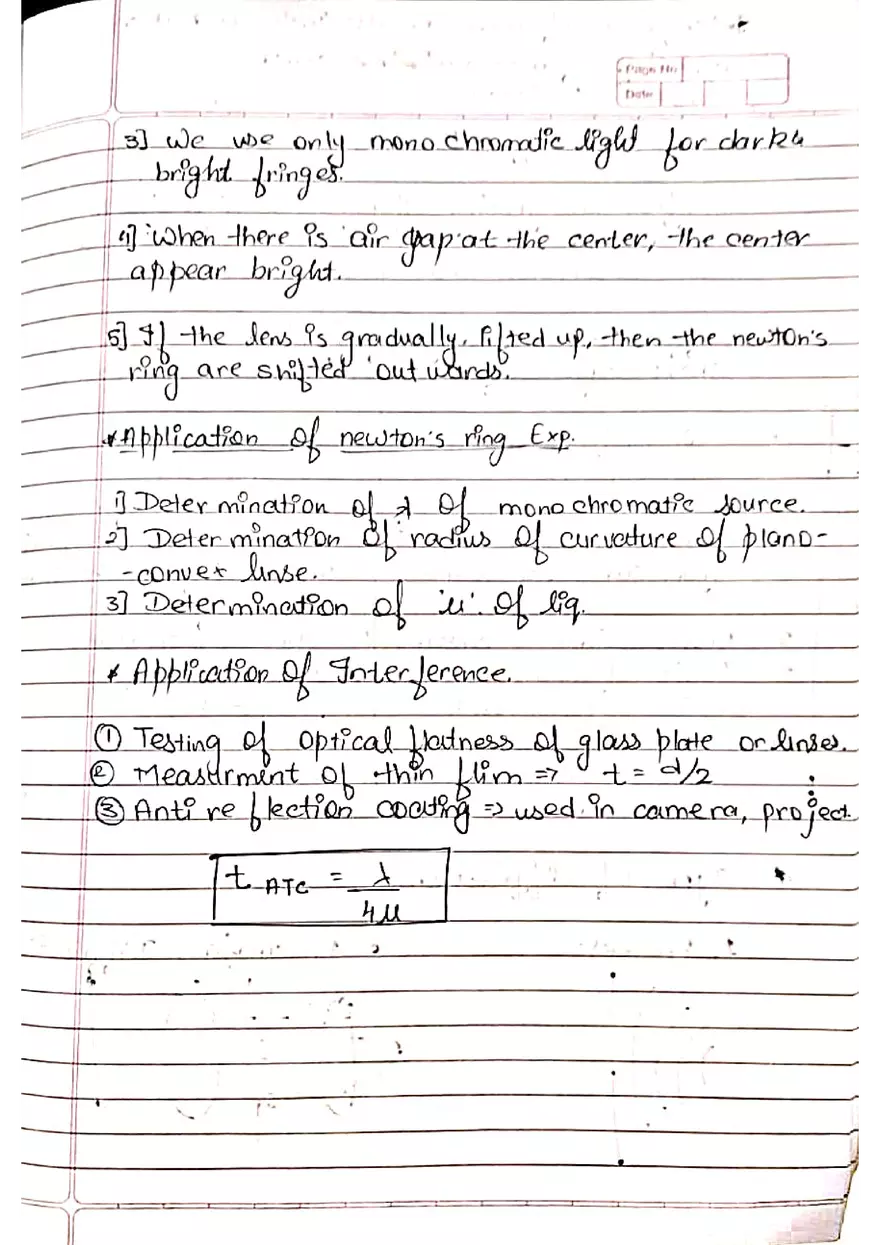 Page No
Date
3] We use only monochromatic light for dark &
bright fringes.
4] When there is air gap at the center, the center
appear bright.
5] If the lens is gradually, lifted up, then the newton's
ring are shifted out wards.
* Application of newton's ring Exp.
1] Determination of λ of monochromatic source.
2] Determination of radius of curvature of plano-
-convex linse.
3] Determination of 'μ' of liq.
* Application of Interference.
① Testing of optical flatness of glass plate or linses.
② Measurment of thin flim => t = d/2
③ Anti reflection coating => used in camera, project.
t ATC = λ
4μ